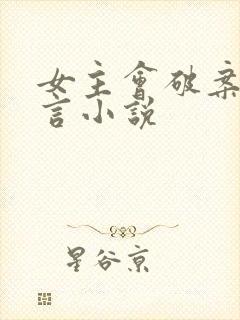 女主會破案
言小說
星谷京